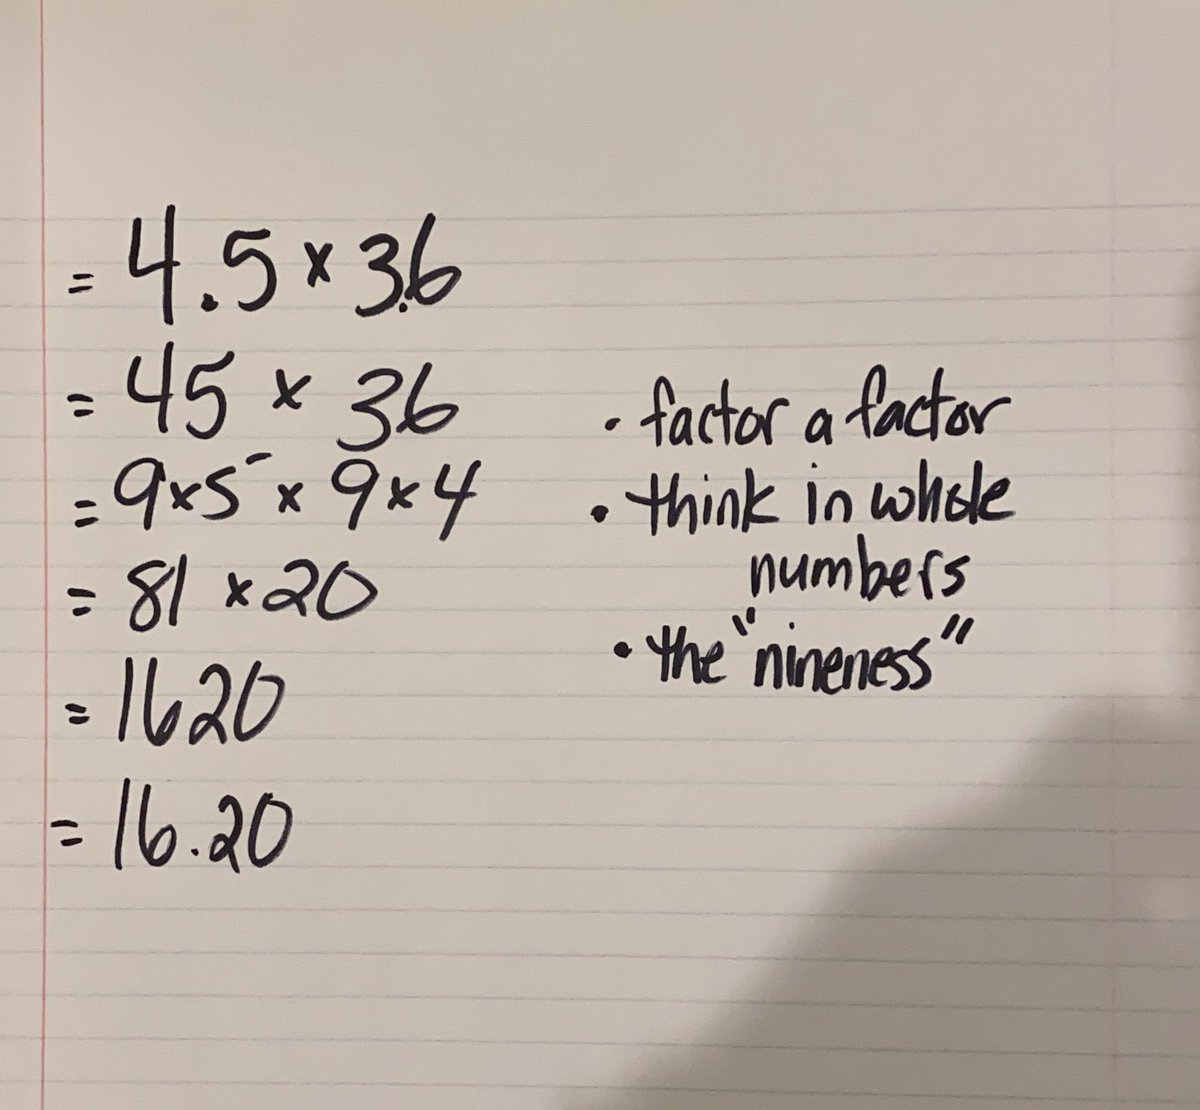 = 4.5 × 3.6
= 45 × 36
= 9×5 × 9×4
= 81 × 20
= 1620
= 16.20
• factor a factor
• think in whole
numbers
• the "nineness"